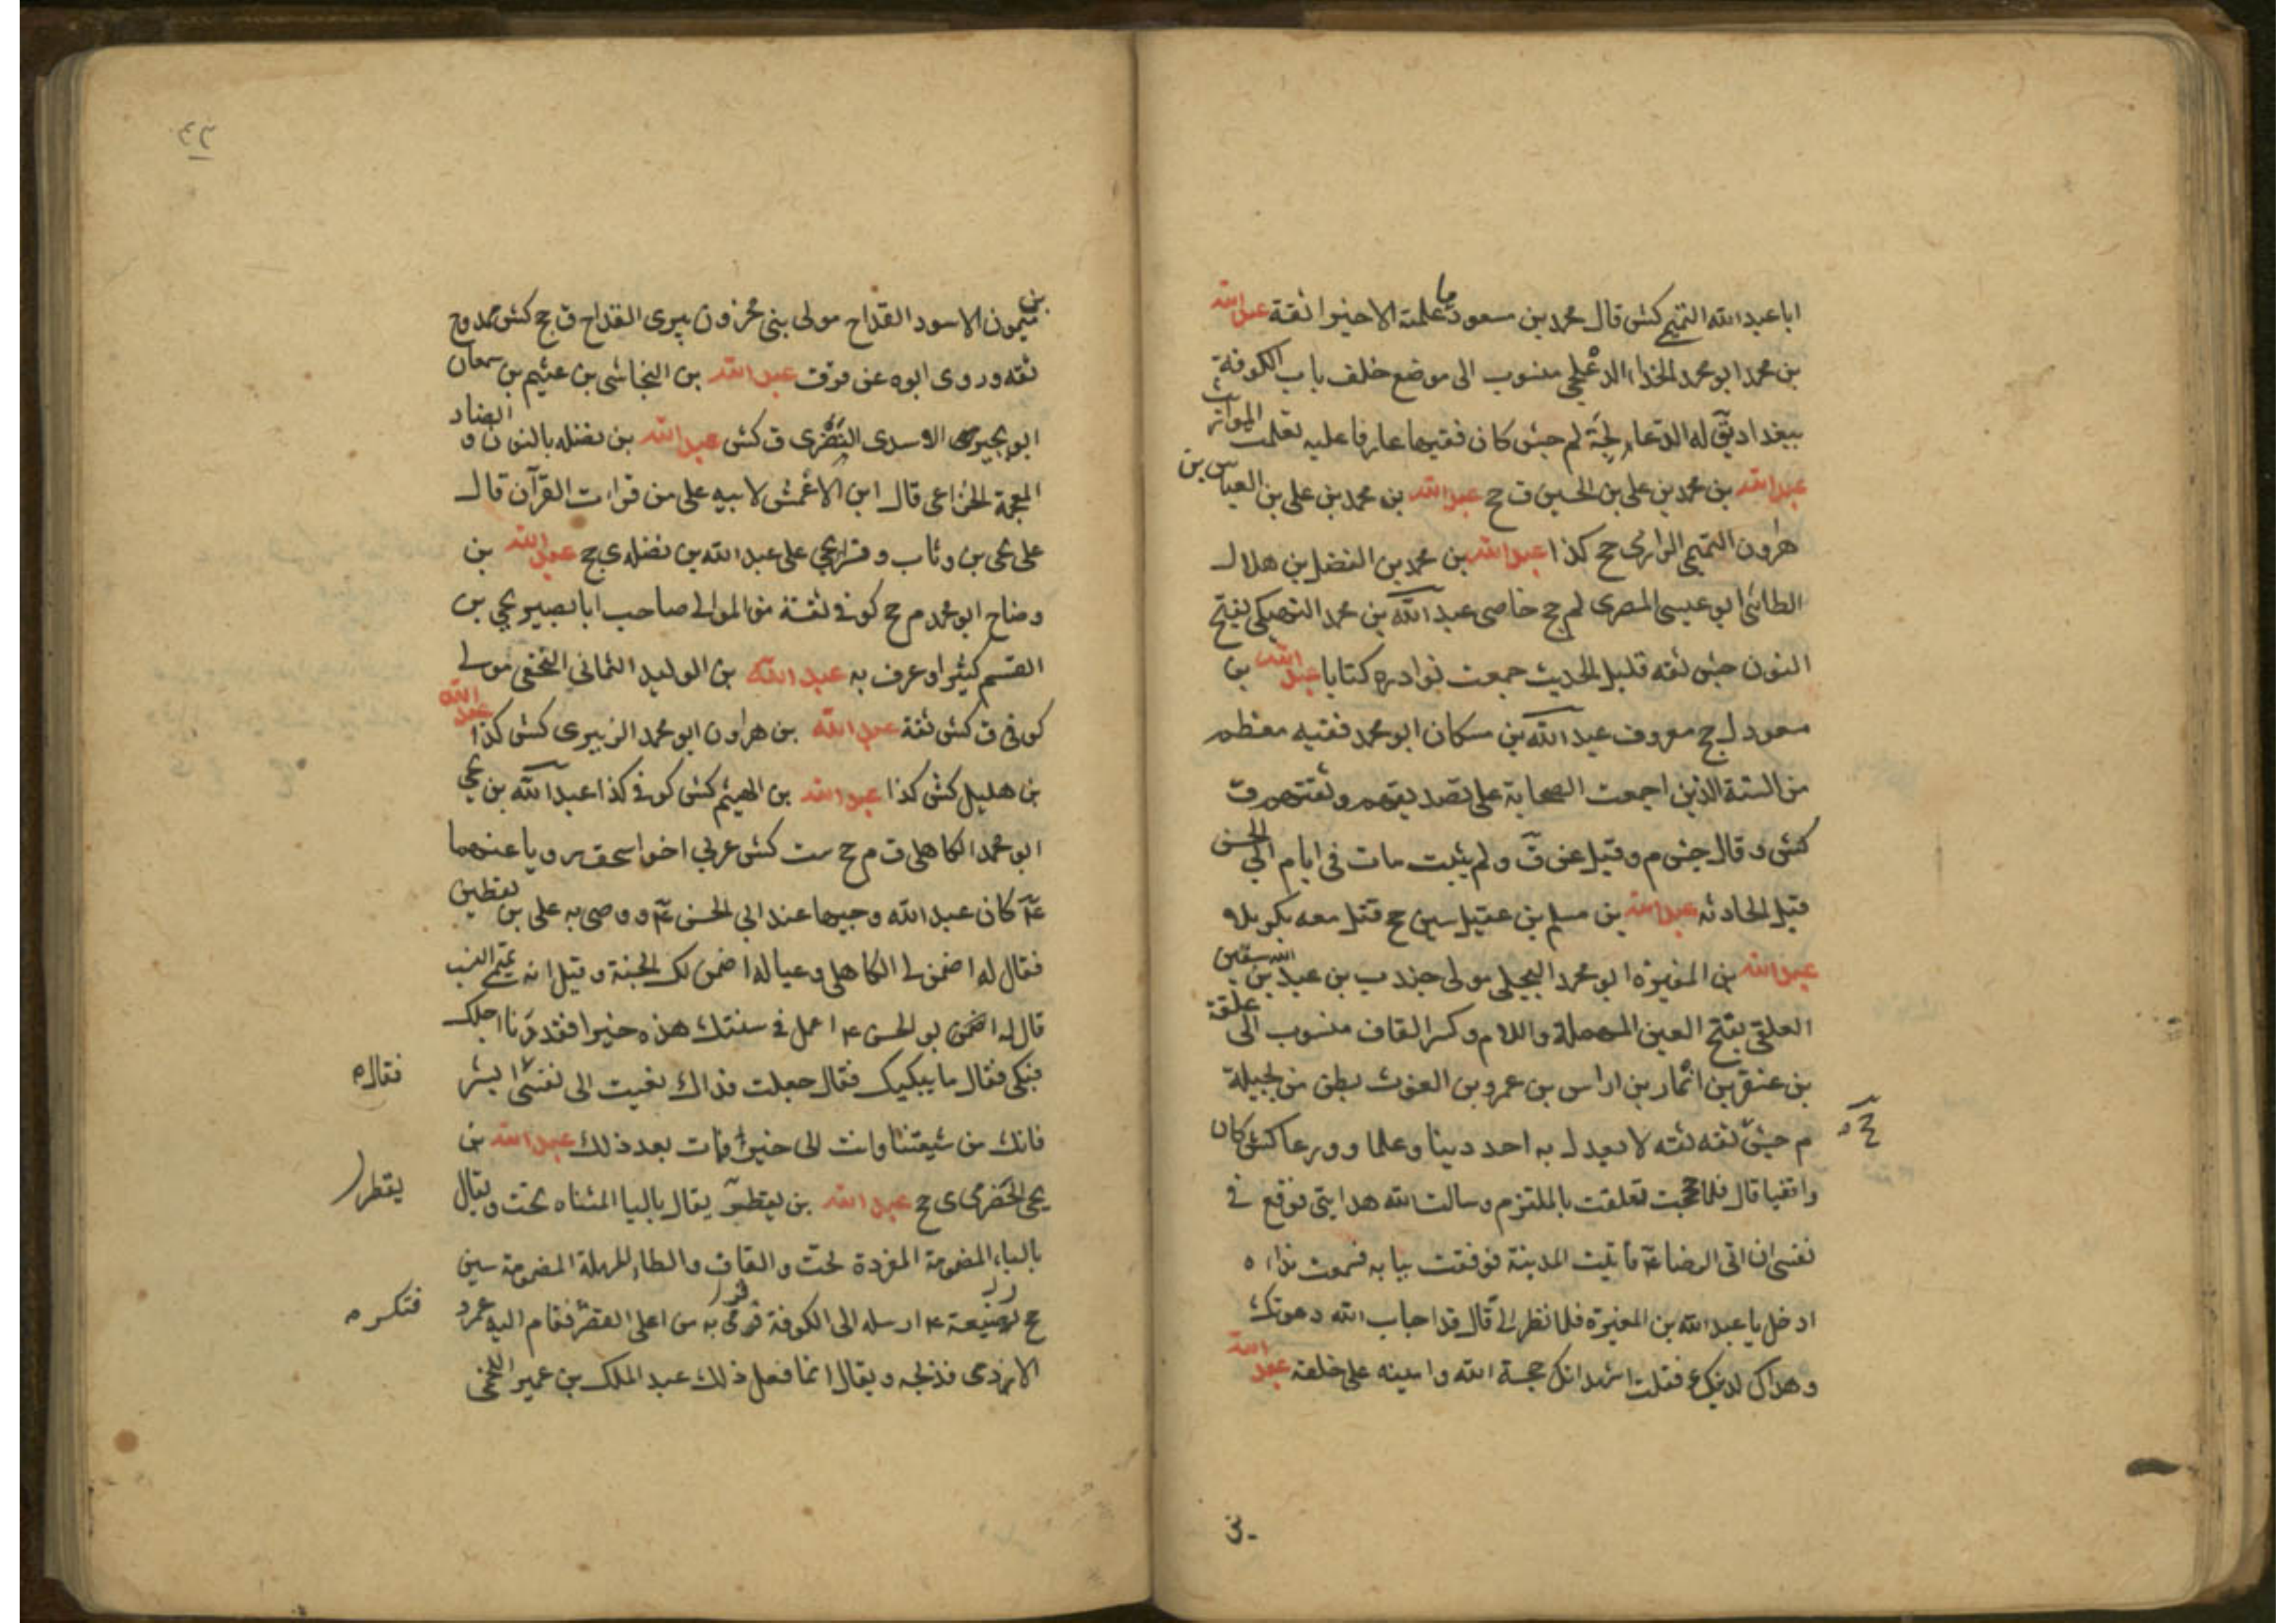 ابا عبد الله التميمي كش قال محمد بن مسعود ما علمته الا خيرا ثقة عبد الله
بن محمد ابو محمد الحذاء الدعلجي منسوب الى موضع خلف باب الكوفة
ببغداد يق له الدعالجة لم جش كان فقيها عارفا عليه تعلمت المواريث
عبد الله بن محمد بن علي بن الحسين ق ج عبد الله بن محمد بن علي بن العباس بن
هرون التميمي الرازي ج كذا عبد الله بن محمد بن الفضل بن هلال
الطائي ابو عيسى المصري لم ج خاصي عبد الله بن محمد النهيكي بفتح
النون جش ثقه قليل الحديث جمعت نوادره كتابا عبد الله بن
مسعود ل ج معروف عبد الله بن مسكان ابو محمد فقيه معظم
من الستة الذين اجمعت الصحابة على تصديقهم وثقتهم ق
كش وقال جش م وقيل عن ق ولم يثبت مات في ايام ابي الحسن
قبل الحادثه عبد الله بن مسلم بن عقيل سين ج قتل معه بكربلاء
عبد الله بن المغيرة ابو محمد البجلي مولى جندب بن عبد الله بن سفين
العلقي بفتح العين المهملة واللام وكسر القاف منسوب الى علقة
بن عبقر بن انمار بن اراس بن عمرو بن الغوث بطن من بجيلة
م جش ثقه ثقه لا يعدل به احد دينا وعلما وورعا كش كان
واقفيا قال فلما حججت تعلقت بالملتزم وسالت الله هدايتي فوقع في
نفسي ان اتي الرضا ع فاتيت المدينة فوقفت ببابه فسمعت نداءه
ادخل يا عبد الله بن المغيرة فلما نظر الي قال قد اجاب الله دعوتك
وهداك لدينك ع فقلت اشهد انك حجة الله وامينه على خلقه عبد الله
بن ميمون الاسود القداح مولى بني مخزون يبرى القداح ق ج كش ممدوح
ثقه وروى ابوه عن قر ق عبد الله بن النجاشي بن عثيم بن سمعان
ابو بجير الاسدي النضري ق كش عبد الله بن نضله بالنون والضاد
المعجمة الخزاعي قال ابن الاعمش لابيه على من قرات القرآن قال
على يحيى بن وثاب وقرا يحيى على عبد الله بن نضله ي ج عبد الله بن
وضاح ابو محمد م ج كوفي ثقة من الموالي صاحب ابا بصير يحيى بن
القسم كثيرا وعرف به عبد الله بن الوليد الثماني النخعي مولى
كوفي ق كش ثقة عبد الله بن هارون ابو محمد الزبيري كش كذا عبد الله
بن هليل كش كذا عبد الله بن الهيثم كش كوفي كذا عبد الله بن يحيى
ابو محمد الكاهلي ق م ج ست كش عربي اخو اسحق رويا عنهما
ع كان عبد الله وجيها عند ابي الحسن ع ووصى به علي بن يقطين
فقال له اضمن لي الكاهلي وعياله اضمن لك الجنة وقيل انه تميمي النسب
قال له ابو الحسن ع اعمل في سنتك هذه خيرا فقد دنا اجلك
فبكى فقال ما يبكيك فقال جعلت فداك نعيت الى نفسي ابشر
فقال
فانك من شيعتنا وانت الى خير فمات بعد ذلك عبد الله بن
يحيى الحضرمي ي ج عبد الله بن يقطر يقال باليا المثناه تحت ويقال
يقطر
بالباء المضمومة المفردة تحت والقاف والطاء المهملة المضمومة سين
ج رضيعه ع ارسله الى الكوفة فرمي به من اعلى القصر فقام اليه عمرو
فتكسر
الازدي فذبحه ويقال انما فعل ذلك عبد الملك بن عمير اللخمي